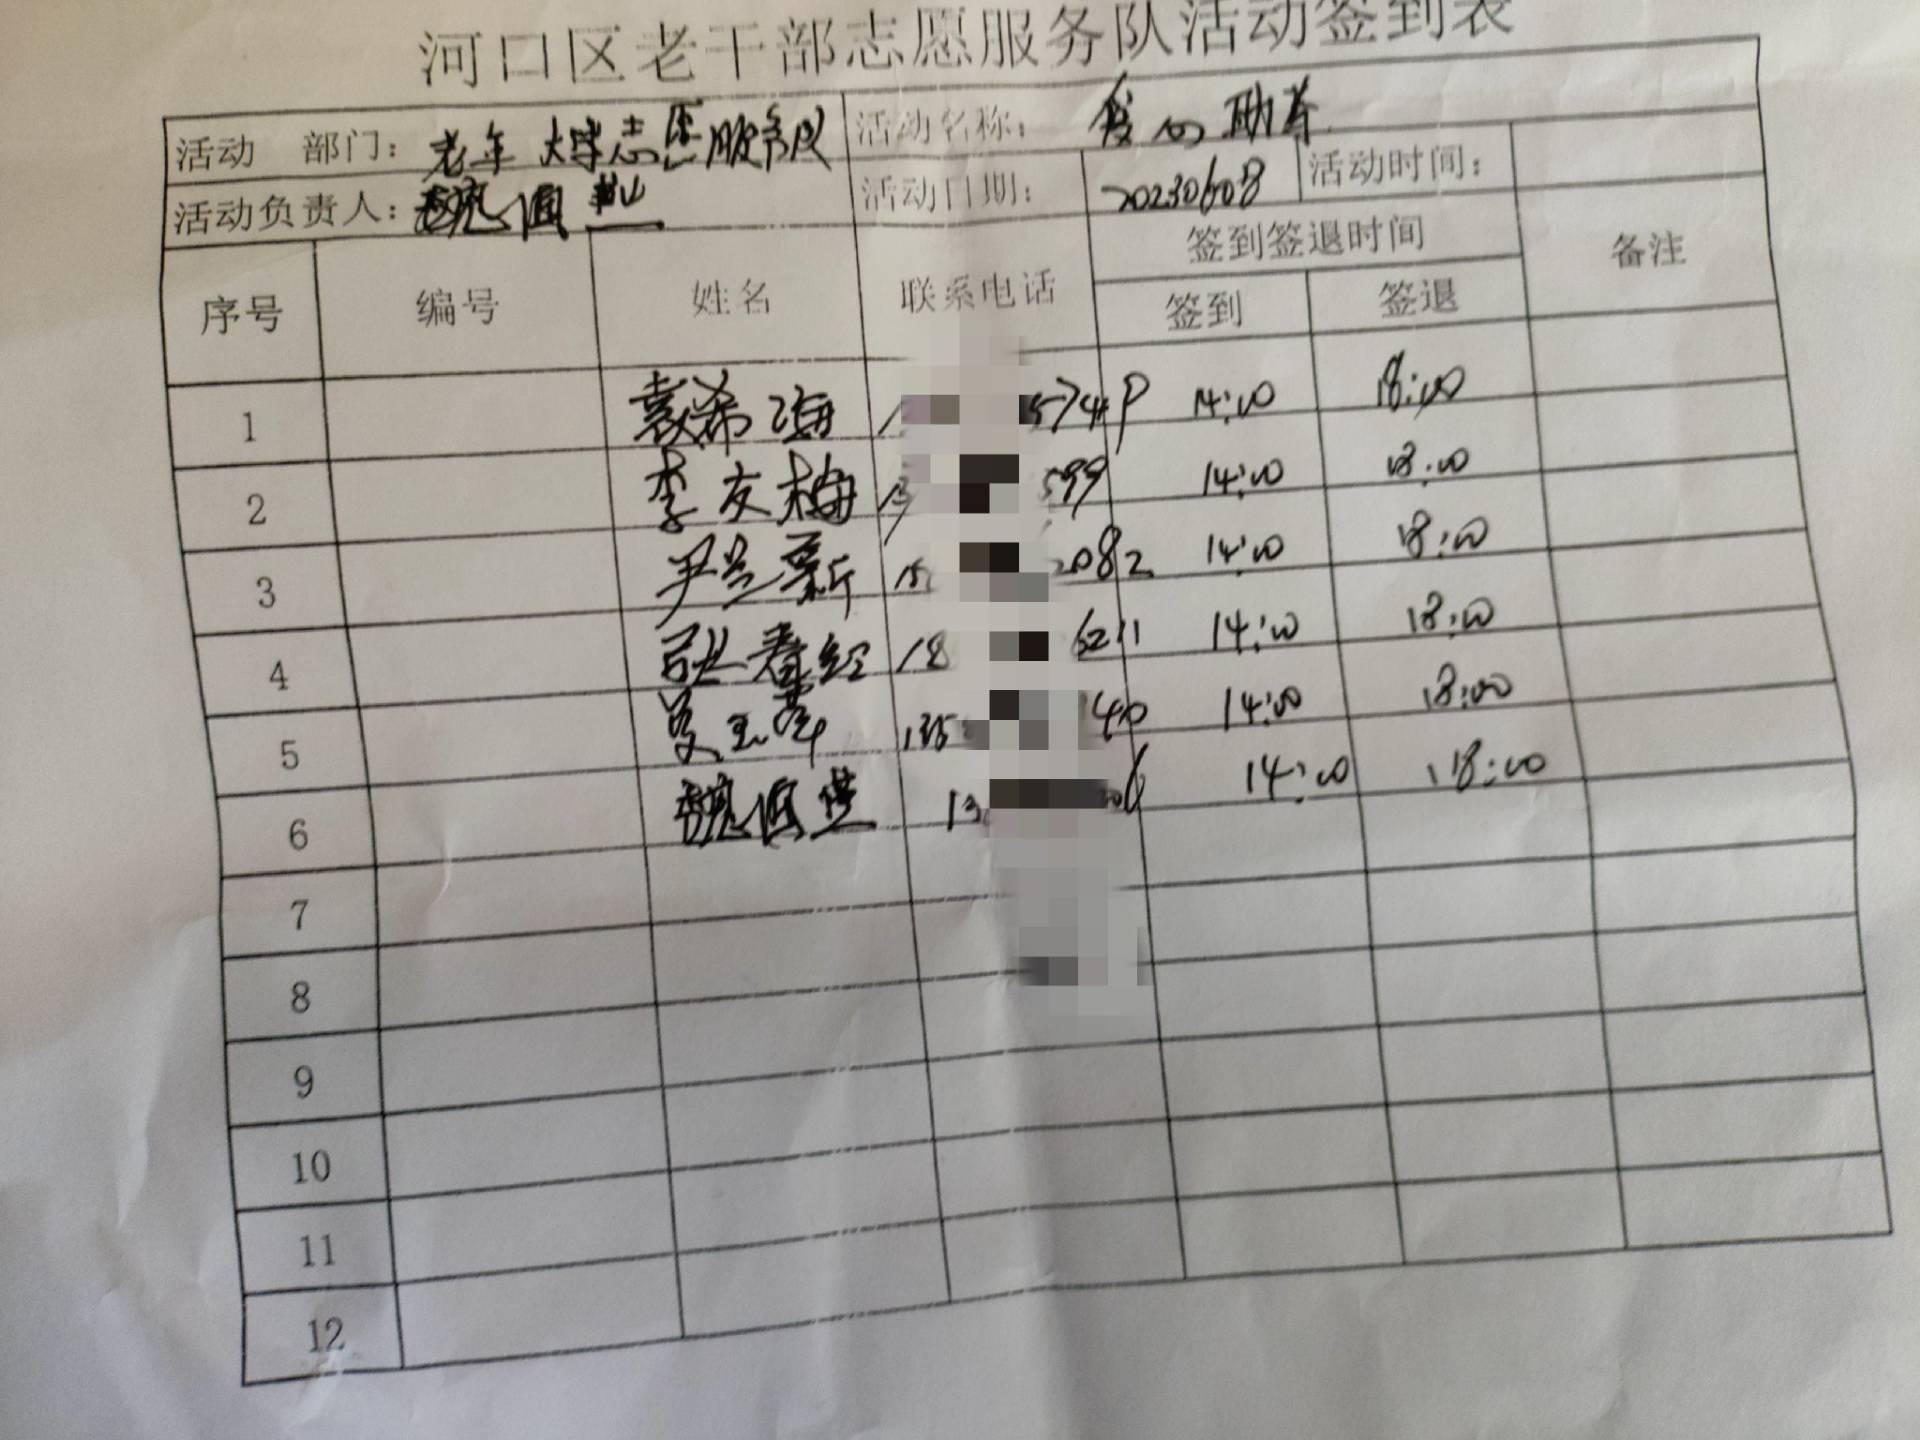 河口区老干部志愿服务队活动签到表
活动 部门：老年大学志愿服务队 活动名称：爱心助考
活动负责人：魏 活动日期：20230608 活动时间：
序号 编号 姓名 联系电话 签到签退时间 备注
签到 签退
1 袁希海 574 14:00 18:00
2 李友梅 13 599 14:00 18:00
3 尹兰新 15 2082 14:00 18:00
4 张春经 18 6211 14:00 18:00
5 135 140 14:00 18:00
6 魏 13 6 14:00 18:00
7
8
9
10
11
12